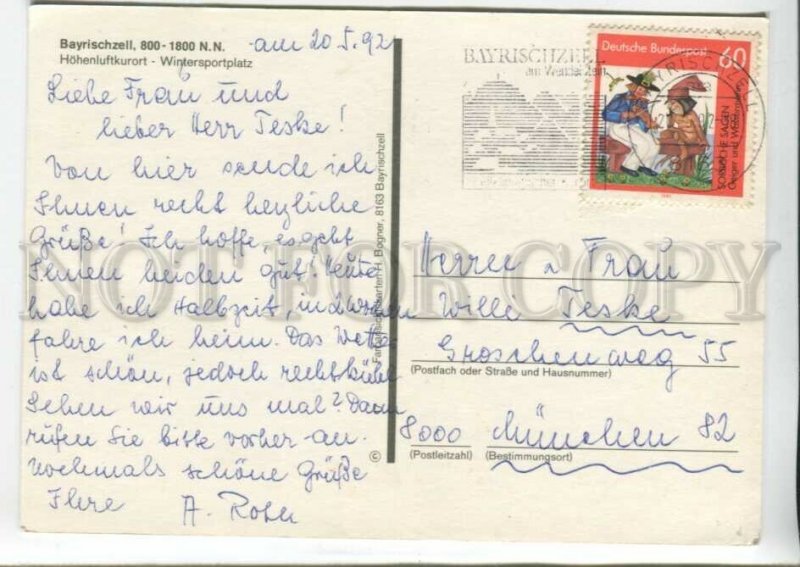 Bayrischzell, 800 - 1800 N.N.
Höhenluftkurort - Wintersportplatz
am 20.5.92
Liebe Frau und
lieber Herr Teske!
Von hier sende ich
Ihnen recht herzliche
Grüße! Ich hoffe, es geht
Ihnen beiden gut! Heute
habe ich Halbzeit, in d. Wochen
fahre ich heim. Das Wetter
ist schön, jedoch recht kühl
Sehen wir uns mal? Dann
rufen Sie bitte vorher an.
Nochmals schöne Grüße
Ihre A. Roth
H. Bogner, 8163 Bayrischzell
©
BAYRISCHZELL
am Wendelstein
Deutsche Bundespost 60
SORBISCHE SAGEN
Geiger und Wassermann
Herrn u Frau
Willi Teske
Groschenweg 55
(Postfach oder Straße und Hausnummer)
8000 München 82
(Postleitzahl) (Bestimmungsort)
NOT FOR COPY